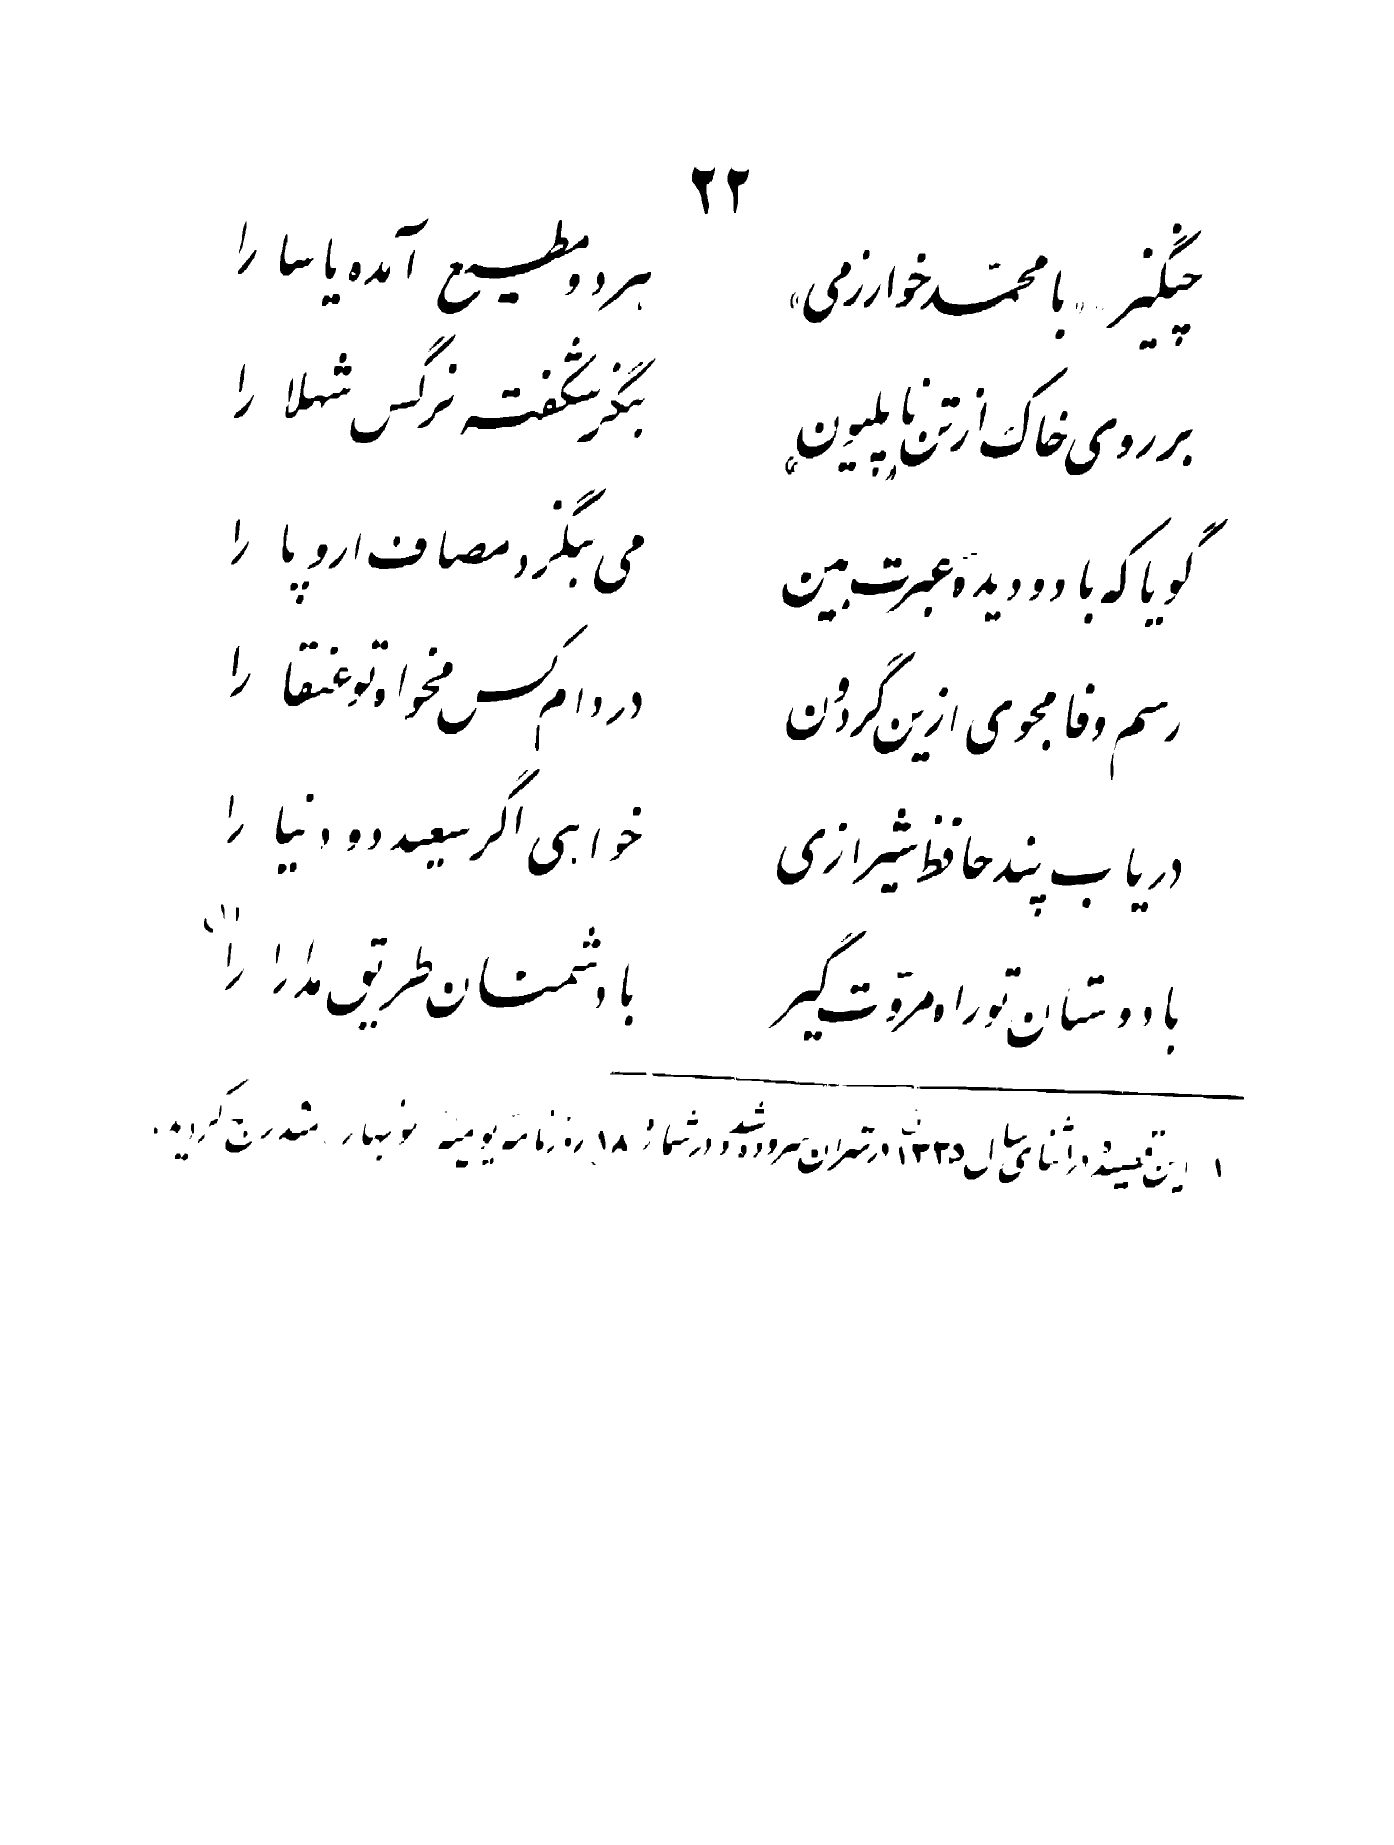 ۲۲
چنگیز «با محمّد خوارزمی» هر دو مطیع آمده یاسا را
بر روی خاک از تن «ناپلیون» بنگر شگفته نرگس شهلا را
گویا که با دو دیدهٔ عبرت بین می بنگرد مصاف اروپا را
رسم وفا مجوی ازین گردون در دام کس مخواه تو عنقا را
دریاب پند حافظ شیرازی خواهی اگر سعید دو دنیا را
با دوستان تو راه مروّت گیر با دشمنان طریق مدارا را (۱)
۱ این قصیده در اثنای سال ۱۳۳۵ ق در تهران سروده شد و در شمارهٔ ۱۸ روزنامهٔ یومیهٔ نوبهار مندرج گردید.